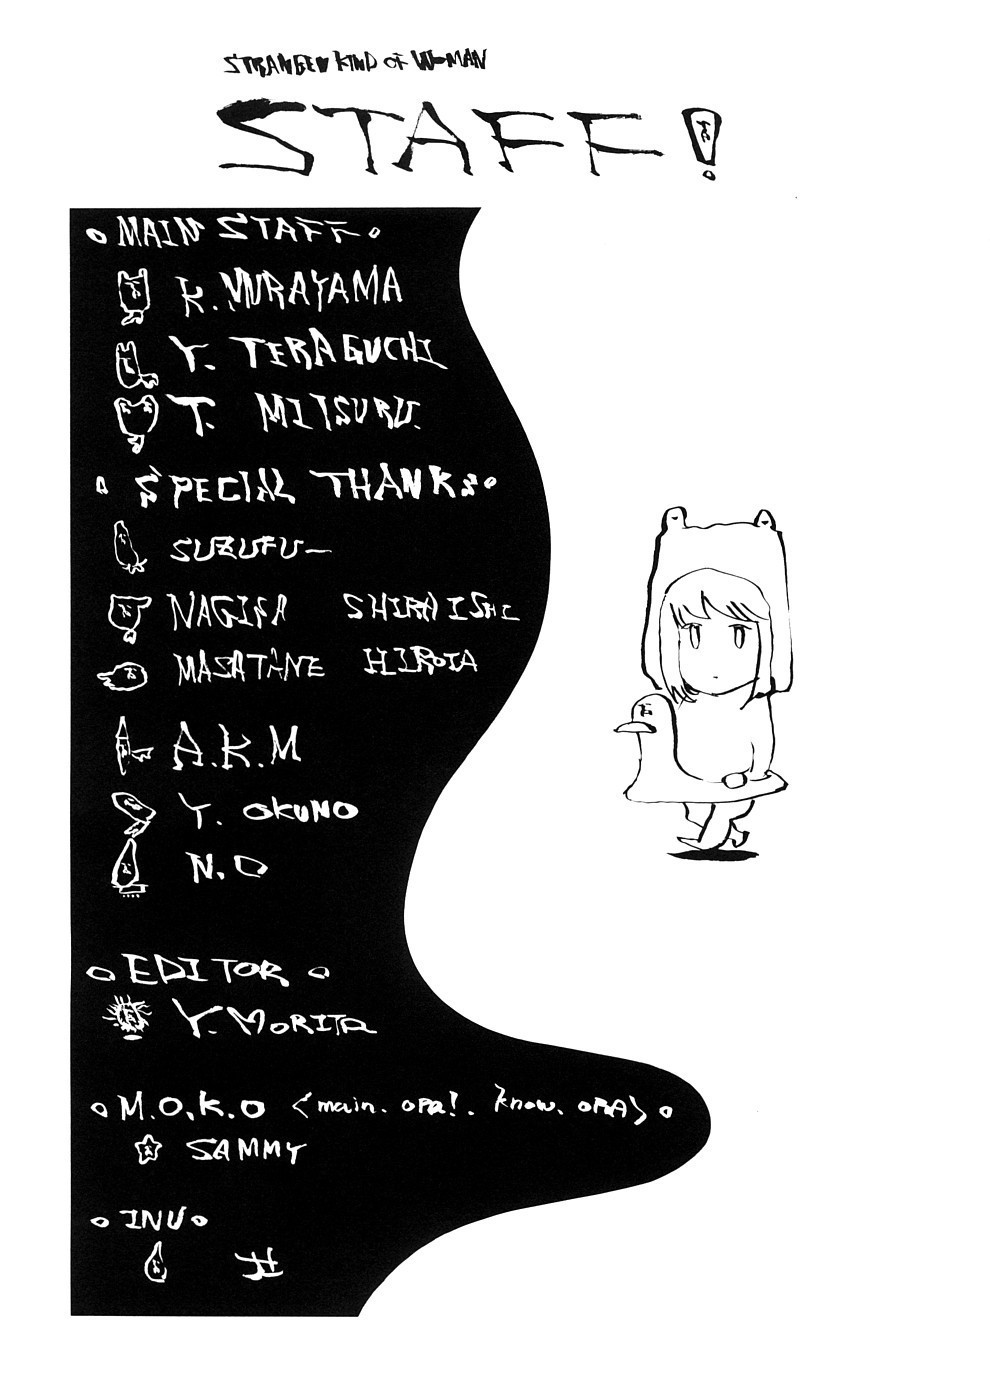 STRANGEW KIND OF WOMAN
STAFF!
MAIN STAFF
K. MURAYAMA
Y. TERAGUCHI
T. MITSURU.
SPECIAL THANKS
SUZUFUー
NAGISA SHIRAISHI
MASATANE HIROTA
A.K.M
Y. OKUNO
N.O
EDITOR
Y. MORITA
M.O.K.O <main. OPA!. know. OPA>
SAMMY
INU